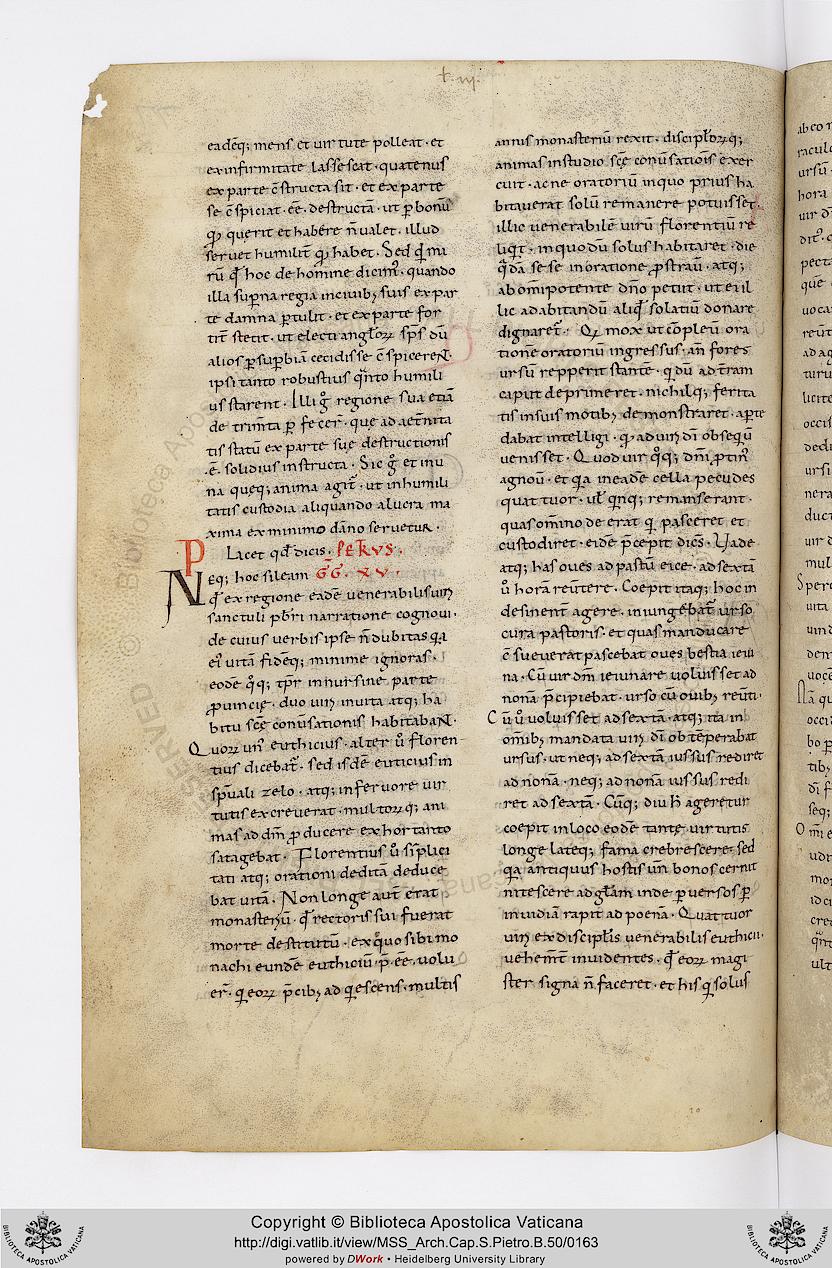 l. iii.
eadēq; mens et virtute polleat · et
ex infirmitate lassescat · quatenus
ex parte c̄structa sit · et ex parte
se c̄spiciat · ēē · destructā · ut p bonū
qđ querit et habere n̄ valet · illud
servet humilit̄ qđ habet · Sed q̇ mi
rū q̇ hoc de homine dicim᷒ · quando
illa sup̄na regia in civib; suis ex par
te damna ptulit · et ex parte for
tit̄ stetit · ut electi angłoꝝ sp̄s dū
alios p supbiā cecidisse c̄spicereN·
ipsi tanto robustius q̈nto humili
us starent · Illi g̊ regione sua etiā
detrim̄ta pfecer̄ · que ad aet̄nita
tis statū ex parte sue destructionis
·ē· solidius instructa · Sic g̊ et in u
na queq; anima agit̄ · ut in humili
tatis custodia aliquando a lucra ma
xima ex minimo dāno servetur ·
Placet qđ dicis · PETRVS ·
Neq; hoc sileam G̅G̅ · XV ·
qđ ex regione eadē venerabilis viri
sanctuli pb̄ri narratione cognovi ·
de cuius verbis ipse n̄ dubitas q̇a
ei᷒ vitā fidēq; minime ignoras ·
eodē q̊q; tp̄r in nursine parte
pvincię · duo viri in vita atq; ha
bitu scē conv̄sationis habitabaN·
Quoꝝ un᷒ euthicius · alter ů floren
tius dicebat̄ · sed isdē euticius in
sp̄uali zelo · atq; in fervore vir
tutis excreverat · multorꝝq; ani
mas ad dm̄ pducere exhortanto
satagebat · Florentius ů sīplici
tati atq; orationi deditā deduce
bat vitā · Non longe aut̄ erat
monasteriū · qđ rectoris sui fuerat
morte destitutū · ex quo sibi mo
nachi eundē euthiciū p̄ēē · volu
er̄ · qui eoꝝ p̄cib; adquiescens · multis
annis monasteriū rexit · discipłoꝝq;
animas in studio scē conv̄sationis exer
cuit · ac ne oratoriū in quo prius ha
bitaverat solū remanere potuisset ·
illic venerabilē virū florentiū re
liq̇t · in quo dū solus habitaret · die
q̇dā sese in oratione pstrav̄ · atq;
ab omipotente dn̄o petiit · ut ei il
lic ad abitandū aliq̇ solatiū donare
dignaret̄ · Q; mox ut cōplev̄ ora
tionē oratoriū ingressus · an̄ fores
ursū repperit stantē · q̇ dū ad t̄ram
caput deprimeret · nichilq; ferita
tis in suis motib; demonstraret · apte
dabat intelligi · qđ ad viri dī obsequiū
venisset · Quod vir q̊q; dn̄i ptin᷒
agnov̄ · et q̇a in eadē cella pecudes
quattuor · ul̄ q̇nq; remanserant ·
quas omīno deerat qui pasceret et
custodiret · eidē p̄cepit dics̄ · Vade
atq; has oves ad pastū eice · ad sextā
ů horā rev̄tere · Coepit itaq; hoc in
desinent̄ agere · iniungebat̄ urso
cura pastoris · et quas manducare
c̄sueverat pascebat oves bestia ieiu
na · Cū vir dn̄i ieiunare voluisset ad
nonā p̄cipiebat · urso cū ovib; rev̄ti ·
Cū ů voluisset ad sextā · atq; ita in
omīb; mandata viri dī obtēperabat
ursus · ut neq; ad sextā iussus rediret
ad nonā · neq; ad nonā iussus redi
ret ad sextā · Cūq; diu h̄ ageretur
coepit in loco eodē tantę virtutis
longe lateq; fama crebrescere · sed
q̇a antiquus hostis un̄ bonos cernit
nitescere ad głam inde pversos p
invidiā rapit ad poenā · Quattuor
viri ex discipłis venerabilis euthicii ·
vehem̄t invidentes · qđ eoꝝ magi
ster signa n̄ faceret · et his qui solus
Copyright © Biblioteca Apostolica Vaticana
http://digi.vatlib.it/view/MSS_Arch.Cap.S.Pietro.B.50/0163
powered by DWork • Heidelberg University Library